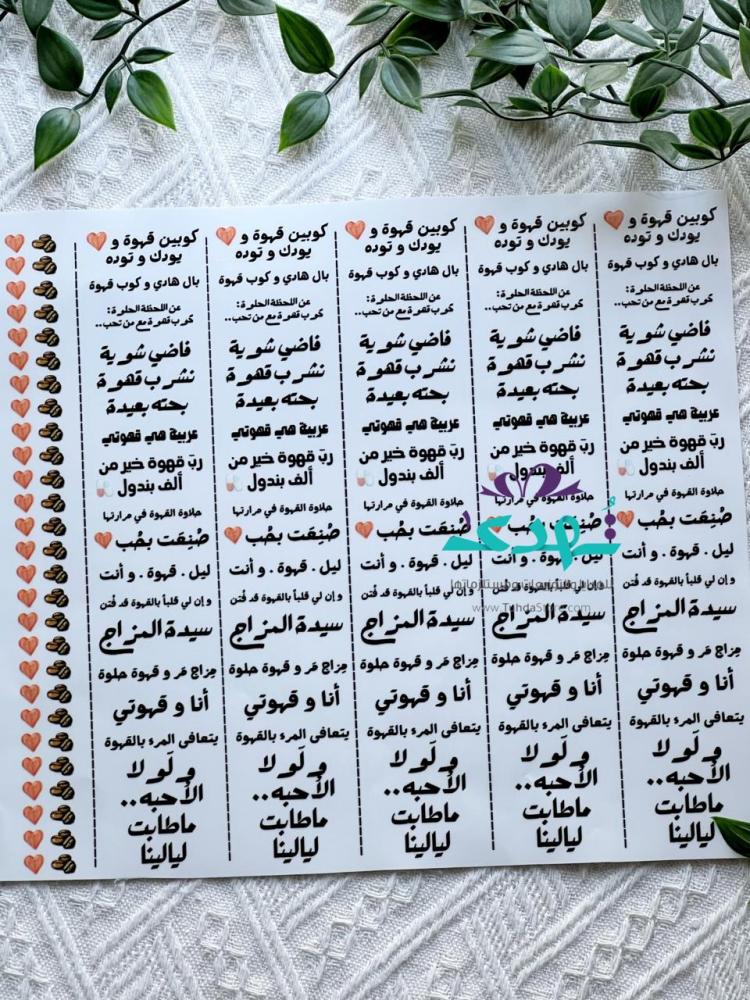 كوبين قهوة و
يودك و توده
بال هادي و كوب قهوة
عن اللحظة الحلوة:
كوب قهوة مع من تحب..
فاضي شوية
نشرب قهوة
بحته بعيدة
عربية هي قهوتي
ربّ قهوة خير من
ألف بندول
حلاوة القهوة في مرارتها
صُنِعَت بحُب
ليل . قهوة . و أنت
و إن لي قلباً بالقهوة قد فُتن
سيدة المزاج
مِزاج مَر و قهوة حلوة
أنا و قهوتي
يتعافى المرء بالقهوة
و لَولا
الأحبه..
ماطابت
ليالينا
كوبين قهوة و
يودك و توده
بال هادي و كوب قهوة
عن اللحظة الحلوة:
كوب قهوة مع من تحب..
فاضي شوية
نشرب قهوة
بحته بعيدة
عربية هي قهوتي
ربّ قهوة خير من
ألف بندول
حلاوة القهوة في مرارتها
صُنِعَت بحُب
ليل . قهوة . و أنت
و إن لي قلباً بالقهوة قد فُتن
سيدة المزاج
مِزاج مَر و قهوة حلوة
أنا و قهوتي
يتعافى المرء بالقهوة
و لَولا
الأحبه..
ماطابت
ليالينا
كوبين قهوة و
يودك و توده
بال هادي و كوب قهوة
عن اللحظة الحلوة:
كوب قهوة مع من تحب..
فاضي شوية
نشرب قهوة
بحته بعيدة
عربية هي قهوتي
ربّ قهوة خير من
ألف بندول
حلاوة القهوة في مرارتها
صُنِعَت بحُب
ليل . قهوة . و أنت
و إن لي قلباً بالقهوة قد فُتن
سيدة المزاج
مِزاج مَر و قهوة حلوة
أنا و قهوتي
يتعافى المرء بالقهوة
و لَولا
الأحبه..
ماطابت
ليالينا
كوبين قهوة و
يودك و توده
بال هادي و كوب قهوة
عن اللحظة الحلوة:
كوب قهوة مع من تحب..
فاضي شوية
نشرب قهوة
بحته بعيدة
عربية هي قهوتي
ربّ قهوة خير من
ألف بندول
حلاوة القهوة في مرارتها
صُنِعَت بحُب
ليل . قهوة . و أنت
و إن لي قلباً بالقهوة قد فُتن
سيدة المزاج
مِزاج مَر و قهوة حلوة
أنا و قهوتي
يتعافى المرء بالقهوة
و لَولا
الأحبه..
ماطابت
ليالينا
كوبين قهوة و
يودك و توده
بال هادي و كوب قهوة
عن اللحظة الحلوة:
كوب قهوة مع من تحب..
فاضي شوية
نشرب قهوة
بحته بعيدة
عربية هي قهوتي
ربّ قهوة خير من
ألف بندول
حلاوة القهوة في مرارتها
صُنِعَت بحُب
ليل . قهوة . و أنت
و إن لي قلباً بالقهوة قد فُتن
سيدة المزاج
مِزاج مَر و قهوة حلوة
أنا و قهوتي
يتعافى المرء بالقهوة
و لَولا
الأحبه..
ماطابت
ليالينا
تُهدى
www.TuhdaStore.com